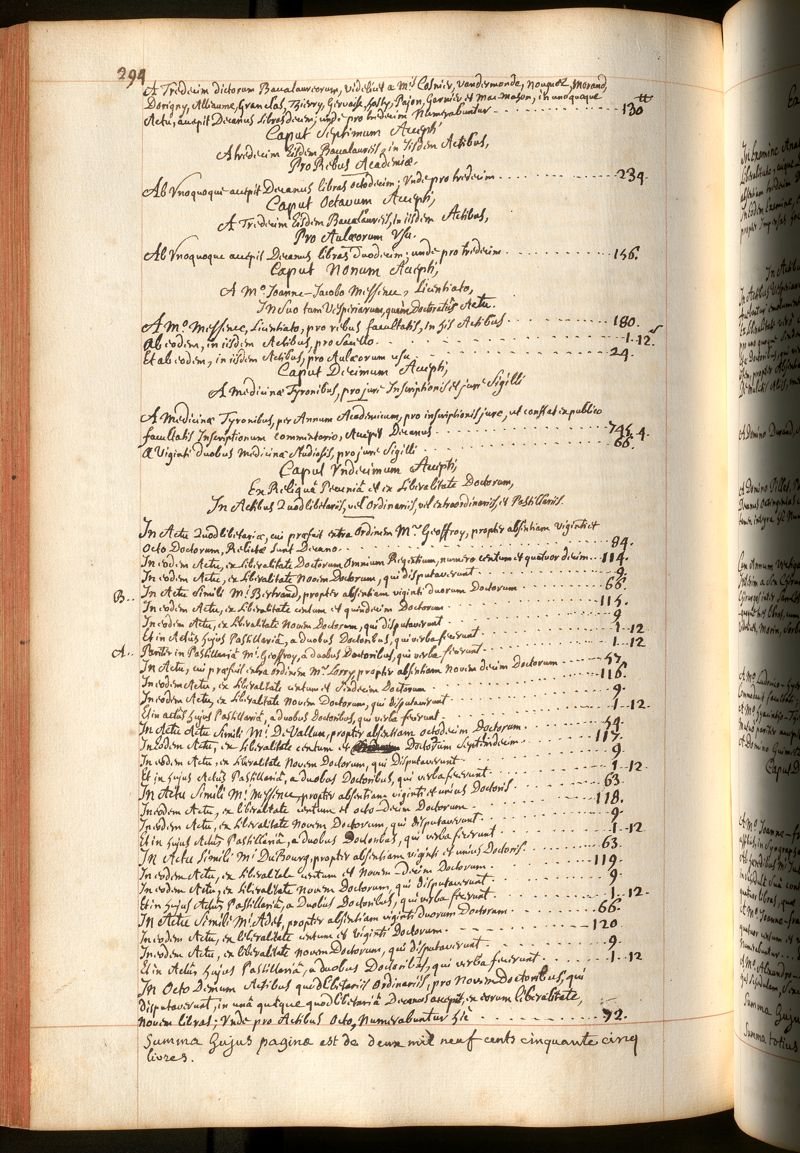 294
A Tredecim dictorum Baccalaureorum, videlicet a Mis Cosnier, Vandermonde, Nouguez, Morand,
Dorigny, Alliaume, Granclas, Thierry, Gervaise, Hasty, Pajon, Garnier et Mac-mahon, in unoquoque
Actu, accepit Decanus Libras decem; unde pro tredecim Numerabuntur 130 tt
Caput Septimum Accepti
A tredecim Eisdem Baccalaureis, in iisdem Actibus,
Pro Rebus Academiæ.
Ab Vnoquoque accepit Decanus libras octodecim; Vnde pro tredecim 234.
Caput Octavum Accepti,
A Tredecim Eisdem Baccalaureis, in iisdem Actibus,
Pro Aulæorum Vsu.
Ab Vnoquoque accepit Decanus libras duodecim; unde pro tredecim 156.
Caput Nonum Accepti,
A Mo. Joanne-Jacobo Messence, Licentiato,
In Suo tam Vesperiarum, quàm Doctoratûs Actu.
A Mo. Messence, Licentiato, pro rebus facultatis, in his Actibus 180.
Ab eodem, in iisdem Actibus, pro Sacello. 1. 12 s
Et ab eodem, in iisdem Actibus, pro Aulæorum usu 24.
Caput Decimum Accepti,
A Medicinæ Tyronibus, pro jure Inscriptionis et jure Sigilli
A Medicinæ Tyronibus, per Annum Academicum, pro inscriptionis jure, ut constat ex publico
facultatis Inscriptionum commentario, Accepit Decanus 745. 4.
A Viginti duobus Medicinæ Studiosis, pro jure Sigilli 66.
Caput Vndecimum Accepti,
Ex Reliquâ Pecuniâ et ex Liberalitate Doctorum,
In Actibus Quodlibetariis, vel Ordinariis, vel extraordinariis, et Pastillariis.
In Actu Quodlibetariæ, cui præfuit extra Ordinem Mr. Geoffroy, propter absentiam viginti et
Octo Doctorum, Relictæ Sunt Decano 84.
In eodem Actu, ex Liberalitate Doctorum Omnium Regentium, numero centum et quatuordecim 114.
In eodem Actu, ex Liberalitate Novem Doctorum, qui disputaverunt 9.
B. In Actu Simili Mi. Bertrand, propter absentiam viginti duorum Doctorum 66.
In eodem Actu, ex Liberalitate centum et quindecim Doctorum 115.
In eodem Actu, ex Liberalitate Novem Doctorum, qui disputaverunt 9
Et in Actûs hujus Pastillariâ, a duobus Doctoribus, qui verba fecerunt 1. 12
A. Pariter in Pastillariâ Mi. Geoffroy, a duobus Doctoribus, qui verba fecerunt 1. 12
In Actu, cui præfuit extra ordinem Mr. Lorry, propter absentiam Novem decim Doctorum 57.
In eodem Actu, ex Liberalitate centum et Sexdecim Doctorum 116.
In eodem Actu, ex Liberalitate Novem Doctorum, qui disputaverunt 9.
Et in actûs hujus Pastillariâ, a duobus Doctoribus, qui verba fecerunt 1. 12.
In Actu Actu Simili Mi. De Vallun, propter absentiam octodecim Doctorum 54.
In eodem Actu, ex Liberalitate centum et Doctorum Septemdecim 117.
In eodem Actu, ex Liberalitate Novem Doctorum, qui Disputaverunt 9
Et in hujus Actûs Pastillariâ, a duobus Doctoribus, qui verba fecerunt 1. 12
In Actu Simili Mi. Messence, propter absentiam viginti et unius Doctoris 63.
In eodem Actu, ex liberalitate centum et octo-decim Doctorum 118.
In eodem Actu, ex Liberalitate Novem Doctorum, qui disputaverunt 9.
Et in hujus Actûs Pastillariâ, a duobus Doctoribus, qui verba fecerunt 1. 12
In Actu Simili Mi. DuBourg, propter absentiam viginti et unius Doctoris 63.
In eodem Actu, ex Liberalitate centum et Novem decim Doctorum 119.
In eodem Actu, ex Liberalitate Novem Doctorum, qui disputaverunt 9.
Et in hujus Actûs Pastillariâ, a Duobus Doctoribus, qui verba fecerunt 1. 12.
In Actu Simili Mi. Adet, propter absentiam viginti duorum Doctorum 66.
In eodem Actu, ex liberalitate centum et viginti Doctorum 120
In eodem Actu, ex liberalitate novem Doctorum, qui disputaverunt 9.
Et in Actûs hujus Pastillariâ, a duobus Doctoribus, qui verba fecerunt 1. 12
In Octo Demum Actibus quodlibetariis Ordinariis, pro Novem Doctoribus, qui
disputaverunt, in unâ quâque quodlibetariâ Decanus accepit, ex eorum liberalitate,
Novem libras; Vnde pro Actibus Octo, Numerabuntur hîc 72.
Summa hujus paginæ est de deux mil neuf cents cinquante cinq
livres.